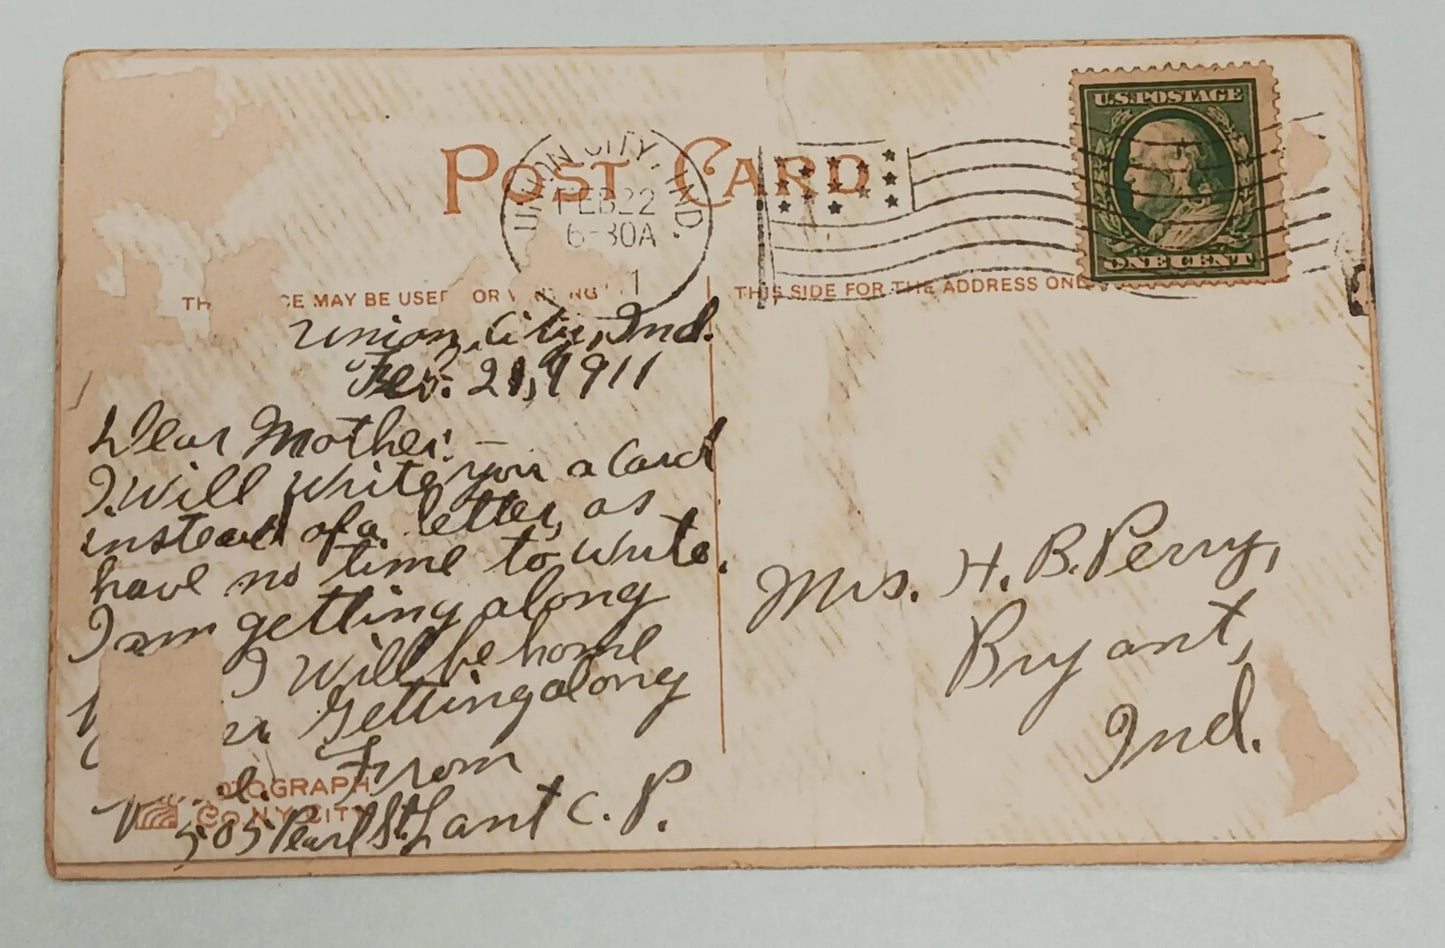 POST CARD
UNION CITY, IND.
FEB 22
6-30A
U.S. POSTAGE
ONE CENT
MAY BE USED
THIS SIDE FOR THE ADDRESS ONLY
Union City, Ind.
Feb. 21, 1911
Dear Mother:—
I will write you a card
instead of a letter, as
have no time to write.
I am getting along
I will be home
Getting along
From
505 Pearl St.
C. P.
OGRAPH
CO N.Y. CITY
Mrs. H. B. Perry,
Bryant,
Ind.